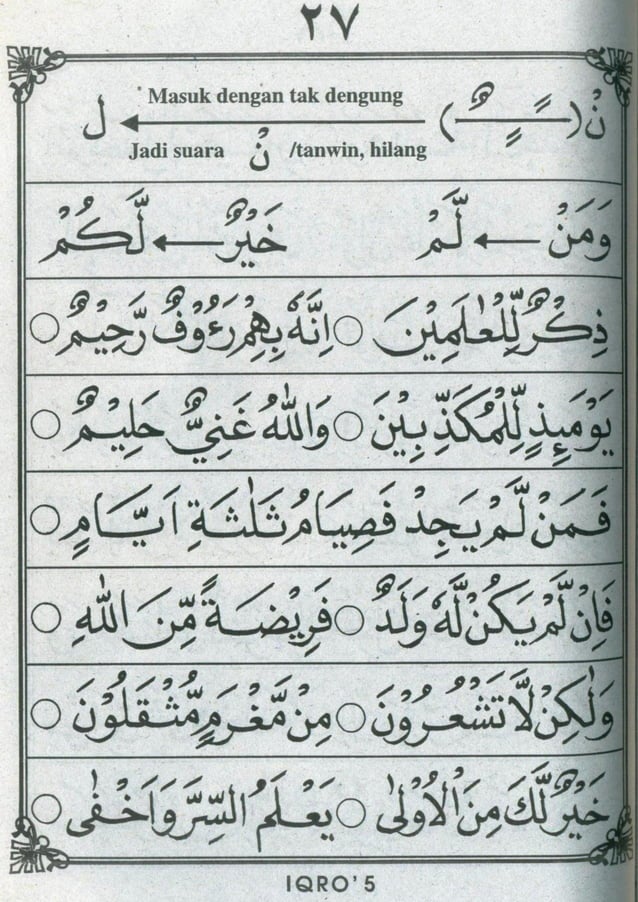 ٢٧
Masuk dengan tak dengung
نْ (ـًـٍـٌ) ← ل
Jadi suara نْ /tanwin, hilang
وَمَنْ ← لَّمْ خَيْرٌ ← لَّكُمْ
ذِكْرٌ لِّلْعٰلَمِيْنَ ○ اِنَّهٗ بِهِمْ رَءُوْفٌ رَّحِيْمٌ ○
يَوْمَئِذٍ لِّلْمُكَذِّبِيْنَ ○ وَاللّٰهُ غَنِيٌّ حَلِيْمٌ ○
فَمَنْ لَّمْ يَجِدْ فَصِيَامُ ثَلٰثَةِ اَيَّامٍ ○
فَاِنْ لَّمْ يَكُنْ لَّهٗ وَلَدٌ ○ فَرِيْضَةً مِّنَ اللّٰهِ ○
وَلٰكِنْ لَّا تَشْعُرُوْنَ ○ مِنْ مَّغْرَمٍ مُّثْقَلُوْنَ ○
خَيْرٌ لَّكَ مِنَ الْاُوْلٰى ○ يَعْلَمُ السِّرَّ وَاَخْفٰى ○
IQRO' 5